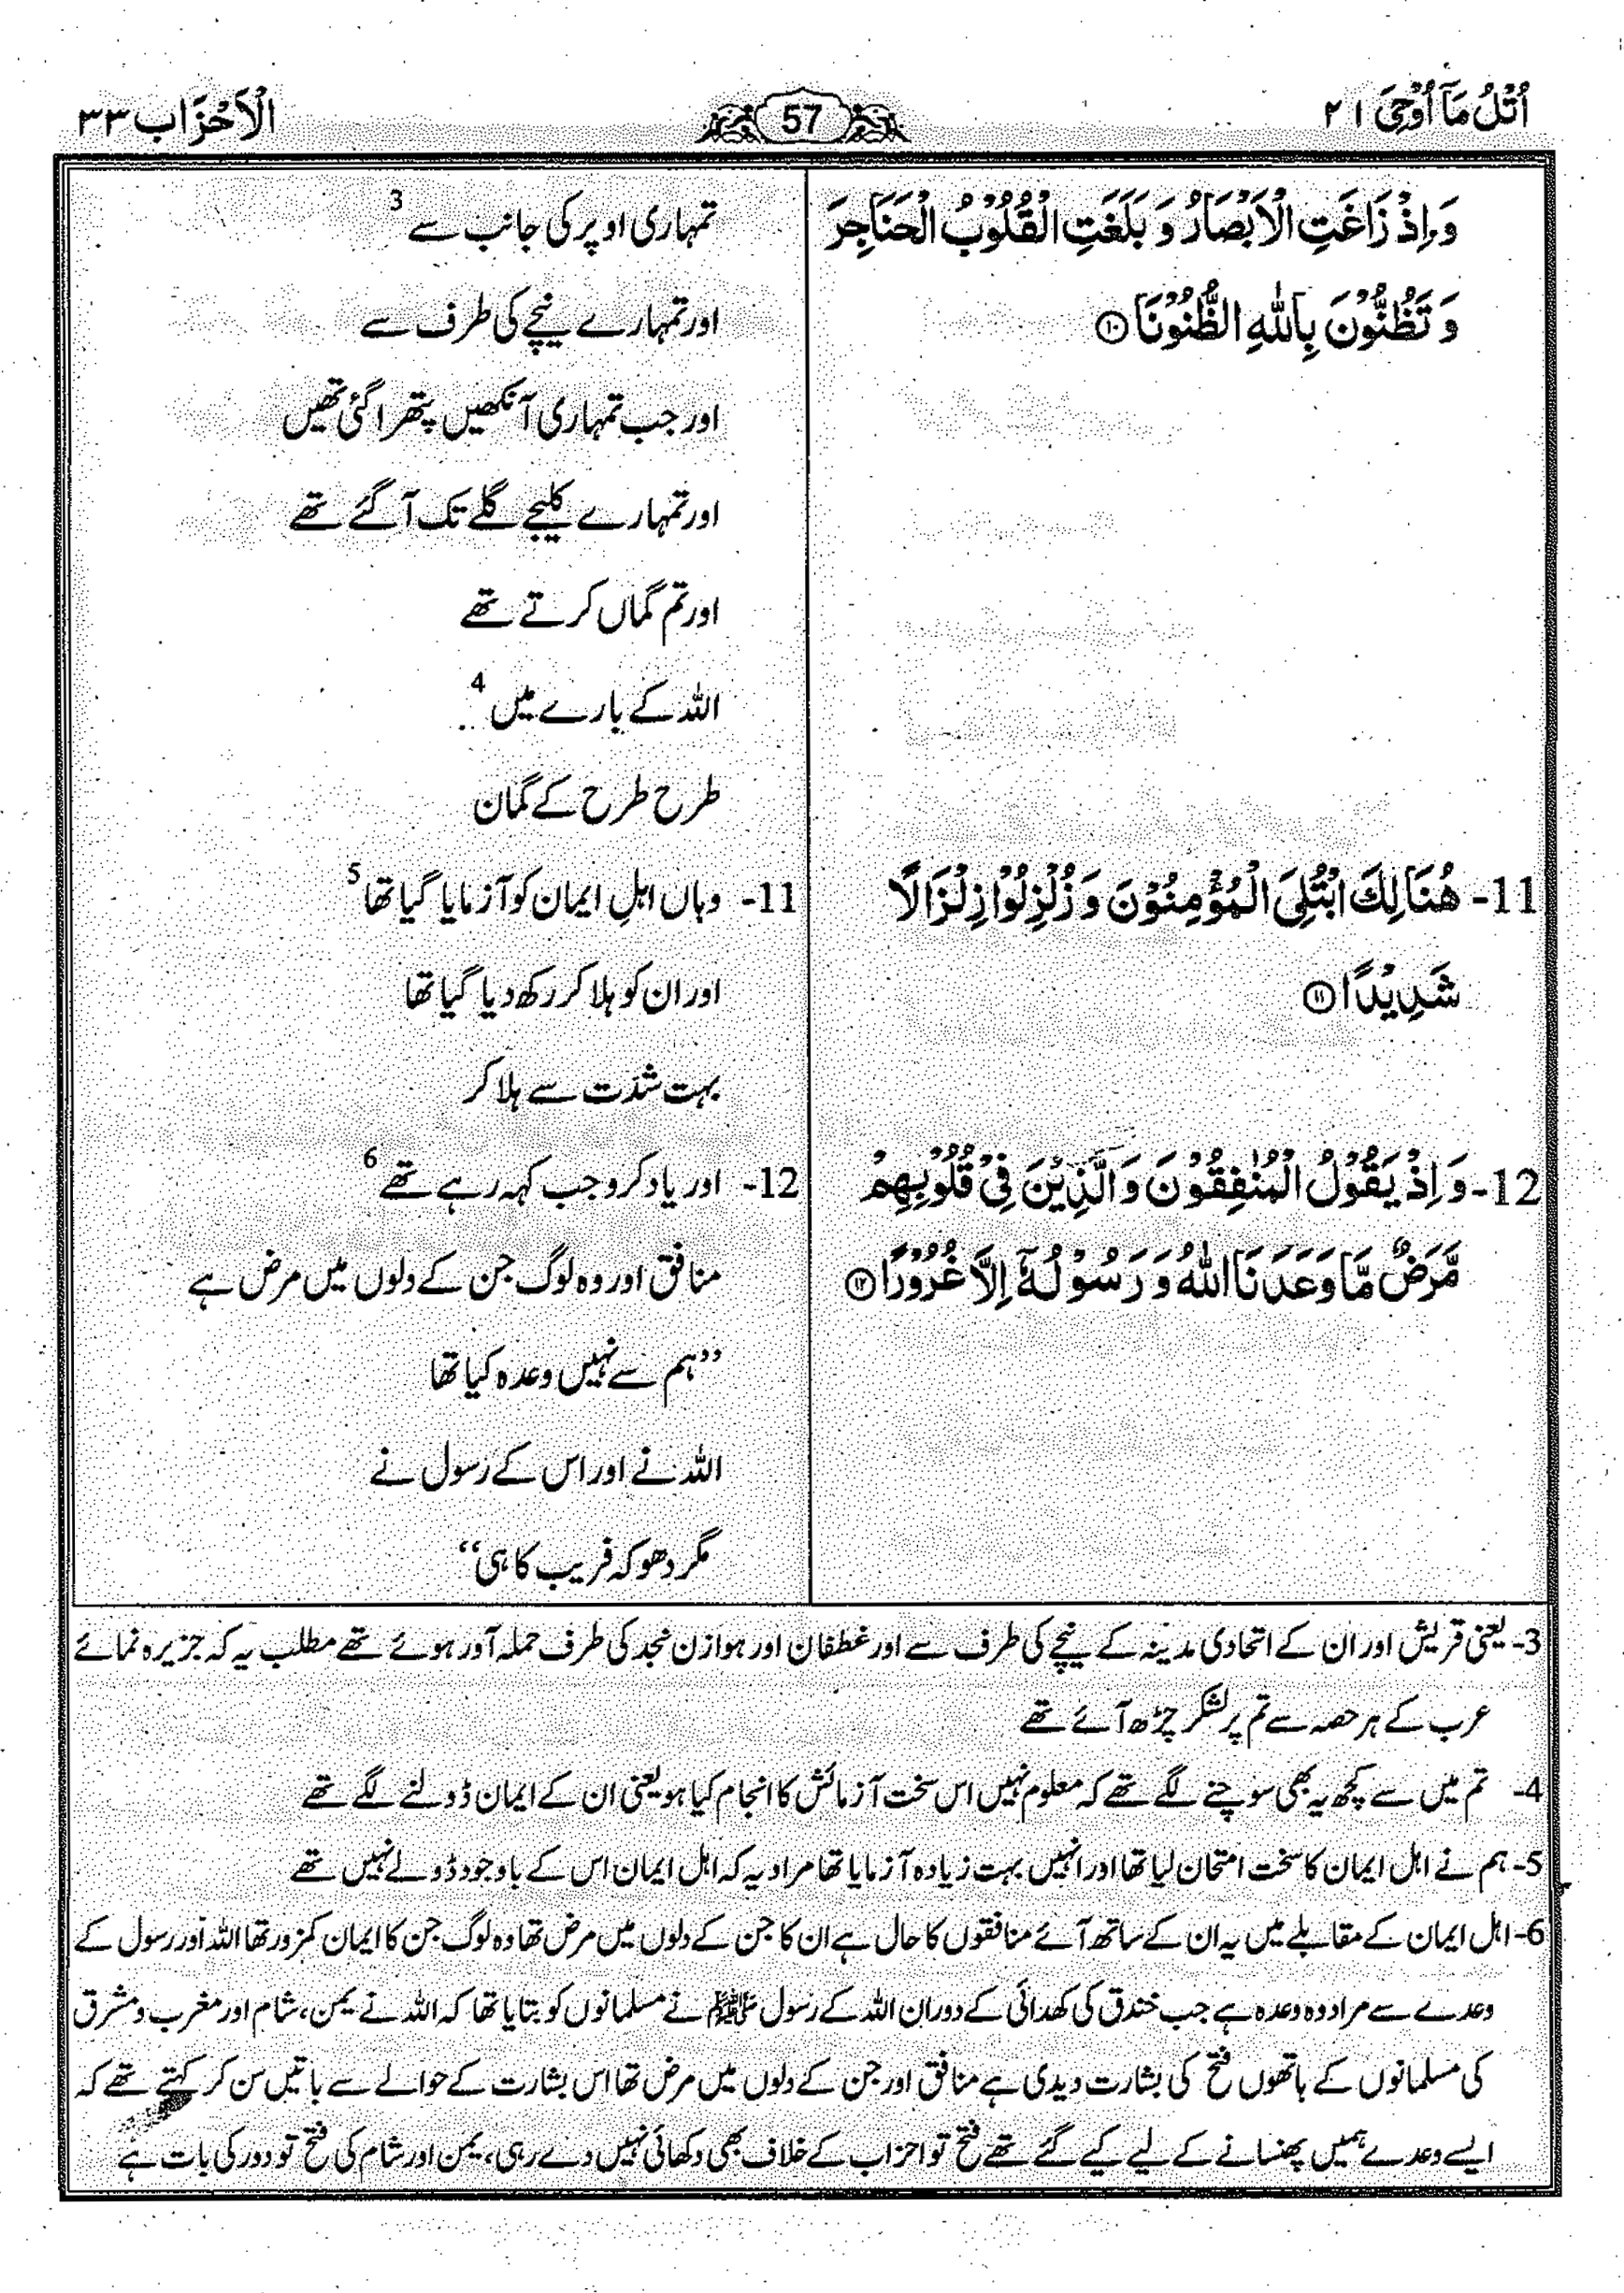 اُتْلُ مَآ اُوْحِیَ ۲۱
57
الْاَحْزَاب ۳۳
وَ اِذْ زَاغَتِ الْاَبْصَارُ وَ بَلَغَتِ الْقُلُوْبُ الْحَنَاجِرَ
وَ تَظُنُّوْنَ بِاللّٰهِ الظُّنُوْنَا ۝۱۰
11- هُنَالِكَ ابْتُلِیَ الْمُؤْمِنُوْنَ وَ زُلْزِلُوْا زِلْزَالًا
شَدِیْدًا ۝۱۱
12- وَ اِذْ یَقُوْلُ الْمُنٰفِقُوْنَ وَ الَّذِیْنَ فِیْ قُلُوْبِهِمْ
مَّرَضٌ مَّا وَعَدَنَا اللّٰهُ وَ رَسُوْلُهٗۤ اِلَّا غُرُوْرًا ۝۱۲
تمہاری اوپر کی جانب سے 3
اور تمہارے نیچے کی طرف سے
اور جب تمہاری آنکھیں پتھرا گئی تھیں
اور تمہارے کلیجے گلے تک آ گئے تھے
اور تم گماں کرتے تھے
اللہ کے بارے میں 4
طرح طرح کے گمان
11- وہاں اہلِ ایمان کو آزمایا گیا تھا 5
اور ان کو ہلا کر رکھ دیا گیا تھا
بہت شدّت سے ہلا کر
12- اور یاد کرو جب کہہ رہے تھے 6
منافق اور وہ لوگ جن کے دلوں میں مرض ہے
”ہم سے نہیں وعدہ کیا تھا
اللہ نے اور اس کے رسول نے
مگر دھوکہ فریب کا ہی“
3- یعنی قریش اور ان کے اتحادی مدینہ کے نیچے کی طرف سے اور غطفان اور ہوازن نجد کی طرف حملہ آور ہوئے تھے مطلب یہ کہ جزیرہ نمائے
عرب کے ہر حصہ سے تم پر لشکر چڑھ آئے تھے
4- تم میں سے کچھ یہ بھی سوچنے لگے تھے کہ معلوم نہیں اس سخت آزمائش کا انجام کیا ہو یعنی ان کے ایمان ڈولنے لگے تھے
5- ہم نے اہل ایمان کا سخت امتحان لیا تھا اور انہیں بہت زیادہ آزمایا تھا مراد یہ کہ اہل ایمان اس کے باوجود ڈولے نہیں تھے
6- اہل ایمان کے مقابلے میں یہ ان کے ساتھ آئے منافقوں کا حال ہے ان کا جن کے دلوں میں مرض تھا وہ لوگ جن کا ایمان کمزور تھا اللہ اور رسول کے
وعدے سے مراد وہ وعدہ ہے جب خندق کی کھدائی کے دوران اللہ کے رسول ﷺ نے مسلمانوں کو بتایا تھا کہ اللہ نے یمن، شام اور مغرب و مشرق
کی مسلمانوں کے ہاتھوں فتح کی بشارت دیدی ہے منافق اور جن کے دلوں میں مرض تھا اس بشارت کے حوالے سے باتیں سن کر کہتے تھے کہ
ایسے وعدے ہمیں پھنسانے کے لیے کیے گئے تھے فتح تو احزاب کے خلاف بھی دکھائی نہیں دے رہی، یمن اور شام کی فتح تو دور کی بات ہے